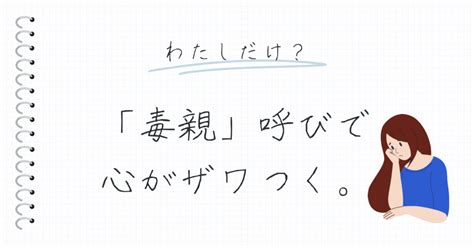 わたしだけ？
「毒親」呼びで
心がザワつく。